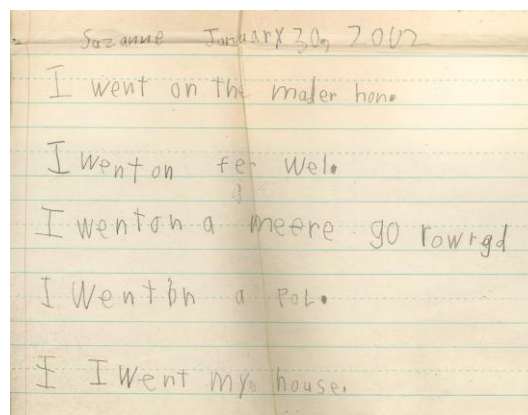 Suzanne January 30, 2002
I went on the mader hon.
I went on fer wel.
I went on a meere go rowrgd
I went on a pol.
I I went my house.